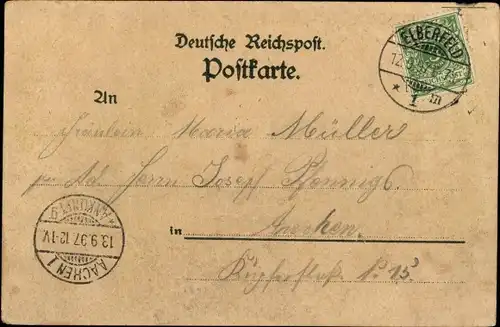 Deutsche Reichspost.
Postkarte.
ELBERFELD
12
1 m
An
Fräulein Maria Müller
p. Ad. Herrn Josef Pfennigs
in Aachen.
ANKUNFT
13.9.97.12-1V.
AACHEN 1
№ 15.